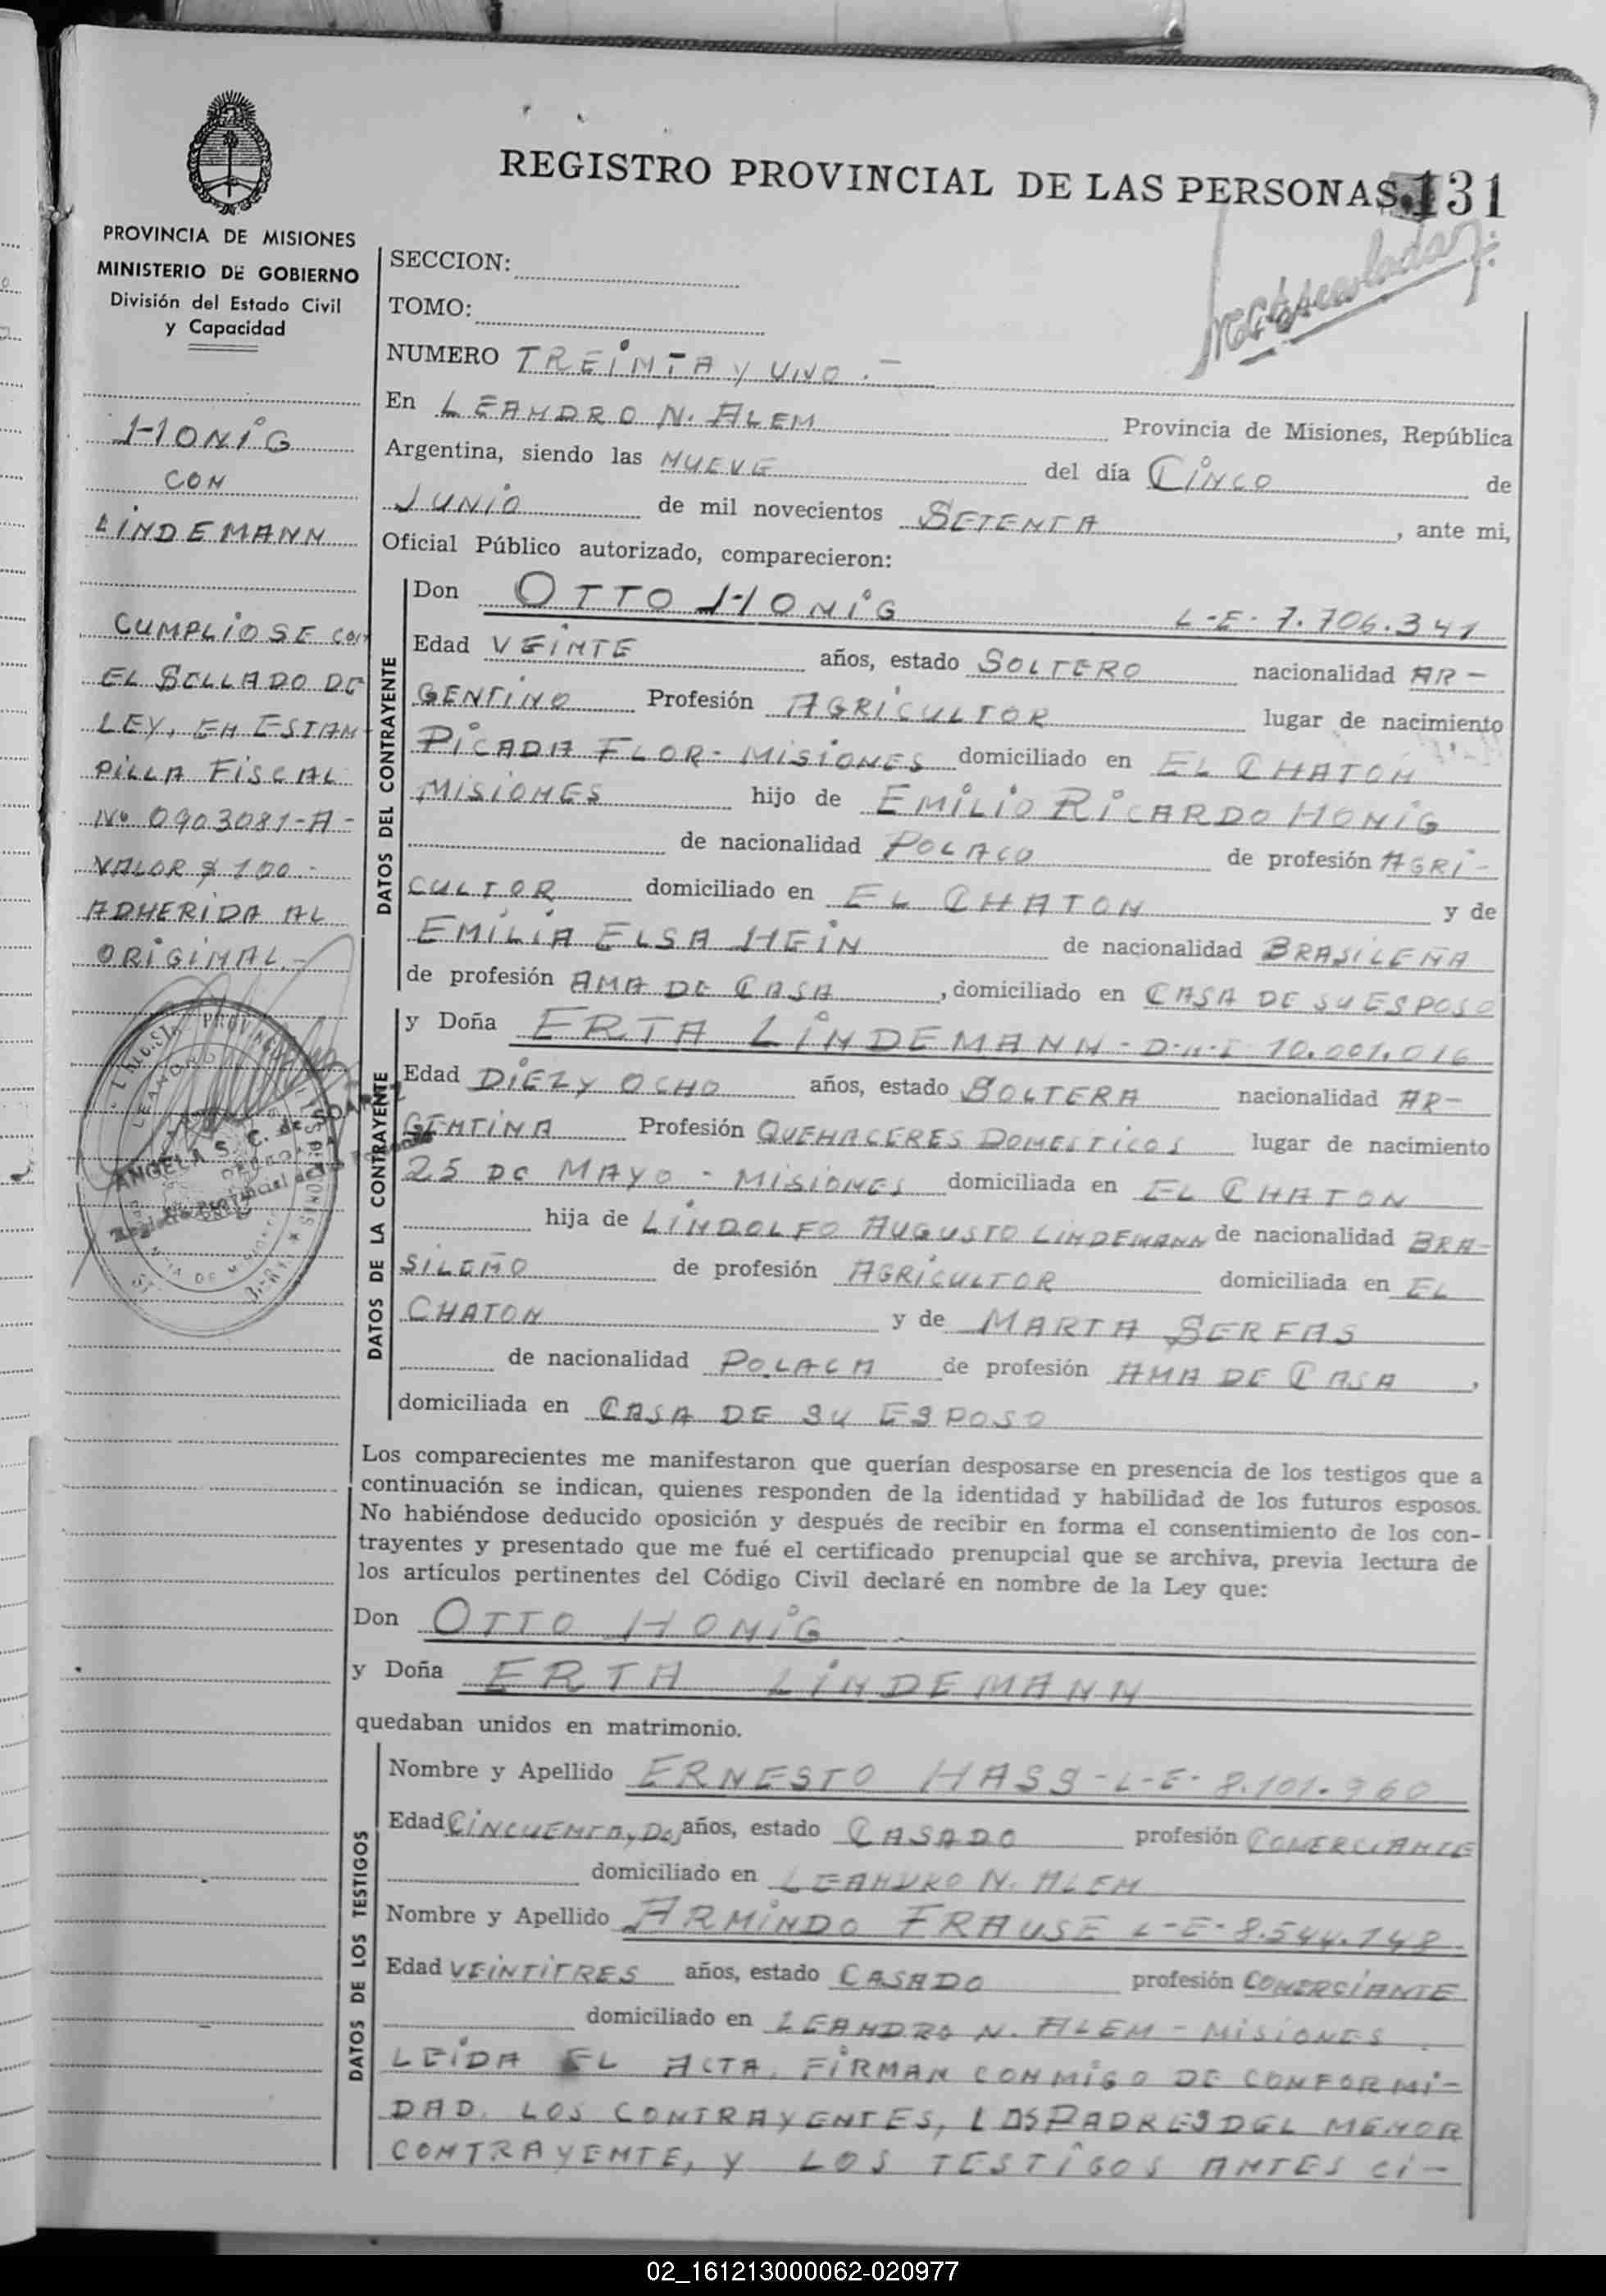 REGISTRO PROVINCIAL DE LAS PERSONAS 131
PROVINCIA DE MISIONES
MINISTERIO DE GOBIERNO
División del Estado Civil
y Capacidad
HONIG
CON
LINDEMANN
CUMPLIOSE CON
EL SELLADO DE
LEY, EN ESTAM-
PILLA FISCAL
Nº 0903081-A-
VALOR $ 100.-
ADHERIDA AL
ORIGINAL.-
ANGELA S. C. de SOAREZ
SECCION:
TOMO:
NUMERO TREINTA Y UNO.-
En LEANDRO N. ALEM Provincia de Misiones, República
Argentina, siendo las NUEVE del día CINCO de
JUNIO de mil novecientos SETENTA, ante mi,
Oficial Público autorizado, comparecieron:
DATOS DEL CONTRAYENTE
Don OTTO HONIG L-E- 7.706.341
Edad VEINTE años, estado SOLTERO nacionalidad AR-
GENTINO Profesión AGRICULTOR lugar de nacimiento
PICADA FLOR-MISIONES domiciliado en EL CHATON
MISIONES hijo de EMILIO RICARDO HONIG
de nacionalidad POLACO de profesión AGRI-
CULTOR domiciliado en EL CHATON y de
EMILIA ELSA HEIN de nacionalidad BRASILEÑA
de profesión AMA DE CASA, domiciliado en CASA DE SU ESPOSO
DATOS DE LA CONTRAYENTE
y Doña ERTA LINDEMANN-D-N-I 10.001.016
Edad DIEZ Y OCHO años, estado SOLTERA nacionalidad AR-
GENTINA Profesión QUEHACERES DOMESTICOS lugar de nacimiento
25 DE MAYO - MISIONES domiciliada en EL CHATON
hija de LINDOLFO AUGUSTO LINDEMANN de nacionalidad BRA-
SILEÑO de profesión AGRICULTOR domiciliada en EL
CHATON y de MARTA SERFAS
de nacionalidad POLACA de profesión AMA DE CASA,
domiciliada en CASA DE SU ESPOSO
Los comparecientes me manifestaron que querían desposarse en presencia de los testigos que a
continuación se indican, quienes responden de la identidad y habilidad de los futuros esposos.
No habiéndose deducido oposición y después de recibir en forma el consentimiento de los con-
trayentes y presentado que me fué el certificado prenupcial que se archiva, previa lectura de
los artículos pertinentes del Código Civil declaré en nombre de la Ley que:
Don OTTO HONIG
y Doña ERTA LINDEMANN
quedaban unidos en matrimonio.
DATOS DE LOS TESTIGOS
Nombre y Apellido ERNESTO HASS-L-E- 8.101.960
Edad CINCUENTA Y DOS años, estado CASADO profesión COMERCIANTE
domiciliado en LEANDRO N. ALEM
Nombre y Apellido ARMINDO FRAUSE L-E- 8.544.148
Edad VEINTITRES años, estado CASADO profesión COMERCIANTE
domiciliado en LEANDRO N. ALEM - MISIONES
LEIDA EL ACTA, FIRMAN CONMIGO DE CONFORMI-
DAD, LOS CONTRAYENTES, LOS PADRES DEL MENOR
CONTRAYENTE, Y LOS TESTIGOS ANTES CI-
02_161213000062-020977